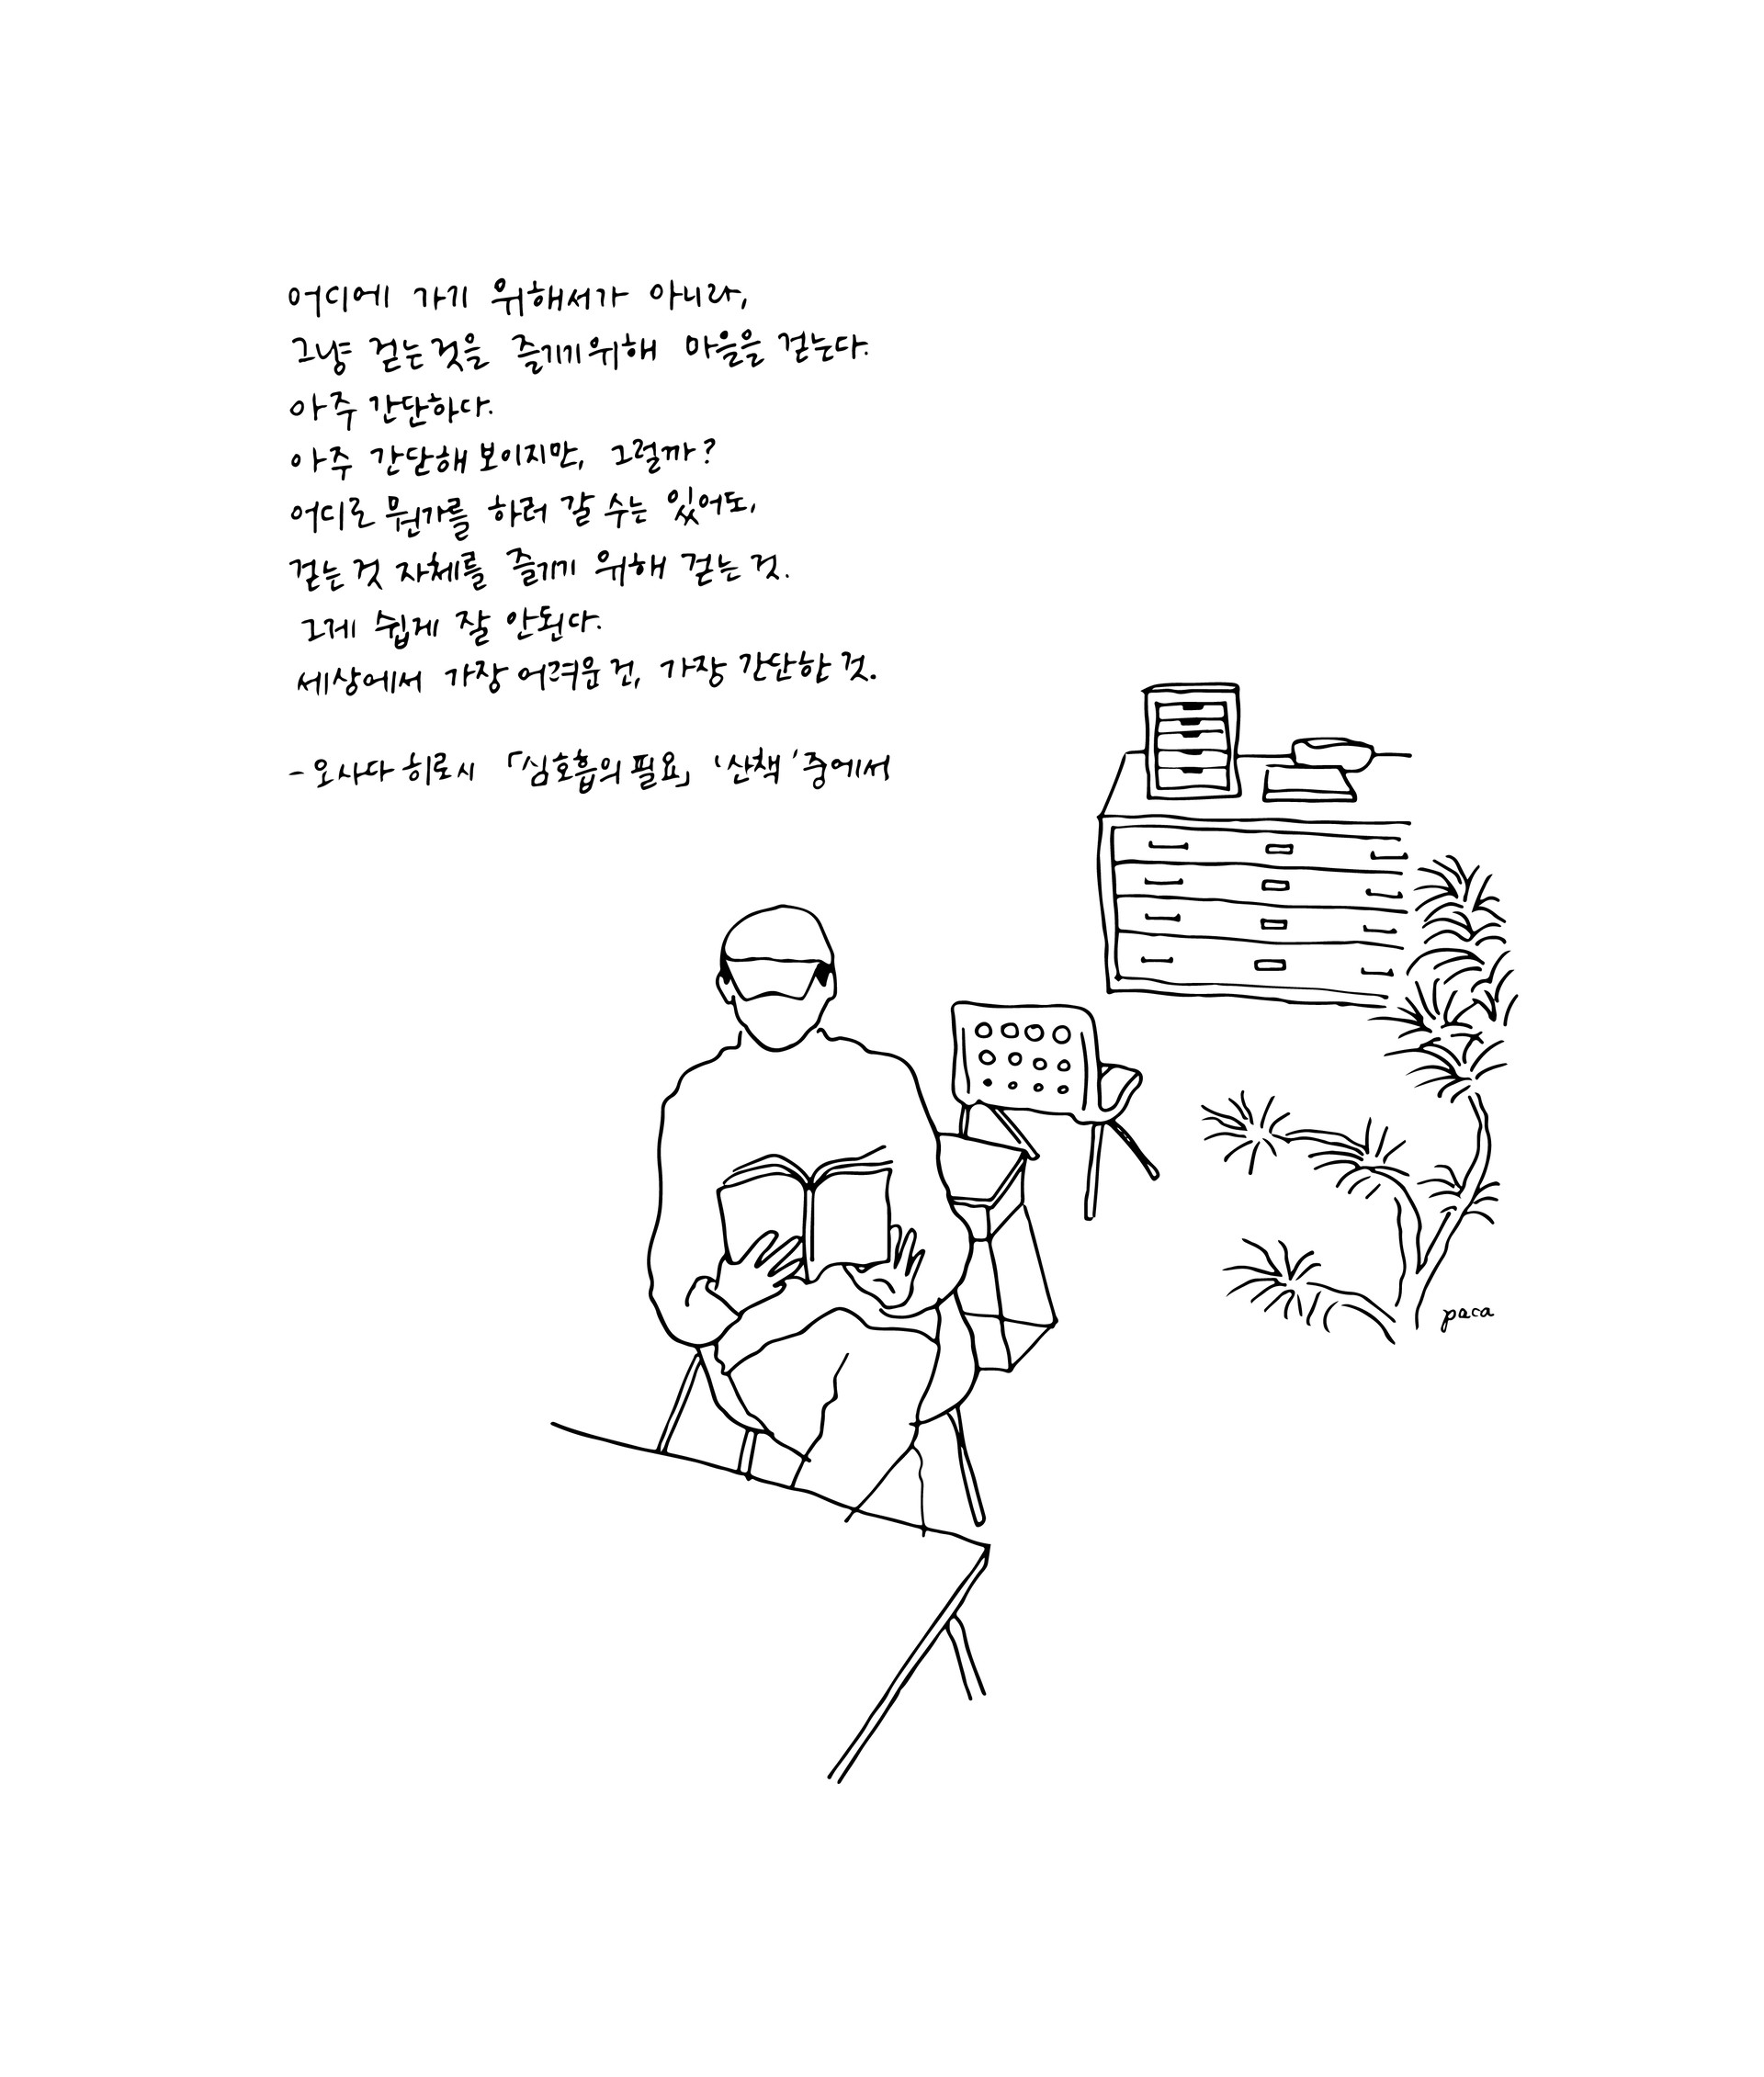 어디에 가기 위해서가 아니라,
그냥 걷는 것을 즐기기위해 마을을 걷는다.
아주 간단하다.
아주 간단해 보이지만, 그럴까?
어디로 뭔가를 하러 갈 수는 있어도,
걷는 것 자체를 즐기기 위해 걷는 것.
그게 쉽게 잘 안된다.
세상에서 가장 어려운 건, 가장 간단한 것.
- 오사다 히로시 「심호흡의 필요」 '산책'중에서
paca